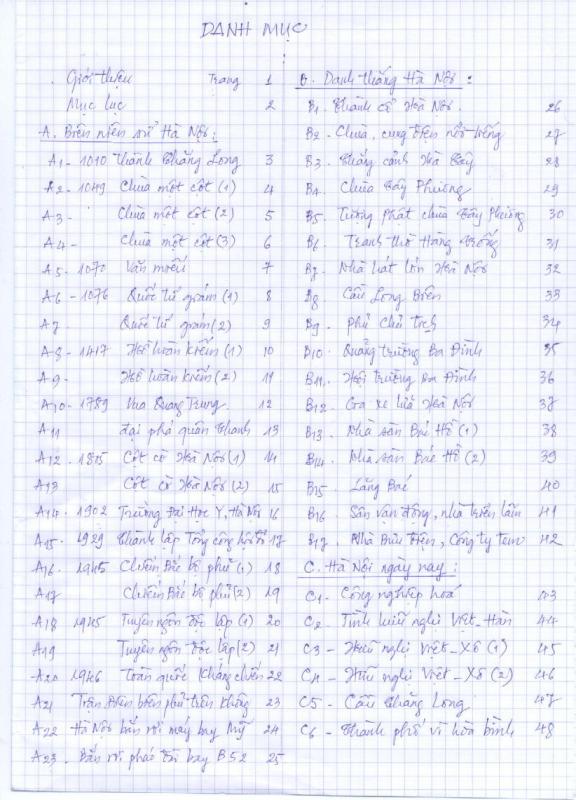 DANH MỤC
Giới thiệu Trang 1
Mục lục 2
A. Biên niên sử Hà Nội:
A1 - 1010 Thành Thăng Long 3
A2 - 1049 Chùa một cột (1) 4
A3 - Chùa một cột (2) 5
A4 - Chùa một cột (3) 6
A5 - 1070 Văn miếu 7
A6 - 1076 Quốc tử giám (1) 8
A7 - Quốc tử giám (2) 9
A8 - 1417 Hồ hoàn kiếm (1) 10
A9 - Hồ hoàn kiếm (2) 11
A10 - 1789 Vua Quang Trung 12
A11 Đại phá quân Thanh 13
A12 - 1805 Cột cờ Hà Nội (1) 14
A13 Cột cờ Hà Nội (2) 15
A14 - 1902 Trường Đại Học Y, Hà Nội 16
A15 - 1929 Thành lập Tổng công hội 17
A16 - 1945 Chiếm Bắc bộ phủ (1) 18
A17 Chiếm Bắc bộ phủ (2) 19
A18 1945 Tuyên ngôn độc lập (1) 20
A19 Tuyên ngôn độc lập (2) 21
A20 1946 Toàn quốc kháng chiến 22
A21 Trận Điện biên phủ trên không 23
A22 Hà Nội bắn rơi máy bay Mỹ 24
A23 - Bắn rơi pháo đài bay B52 25
B. Danh thắng Hà Nội:
B1 - Thành cổ Hà Nội. 26
B2 - Chùa, cung điện nổi tiếng 27
B3 - Thắng cảnh Hà Tây 28
B4 - Chùa Tây Phương 29
B5 - Tượng phật chùa Tây Phương 30
B6 - Tranh thờ Hàng Trống 31
B7 - Nhà hát lớn Hà Nội 32
B8 - Cầu Long Biên 33
B9 - Phủ Chủ tịch 34
B10 - Quảng trường Ba Đình 35
B11 - Hội trường Ba Đình 36
B12 - Ga xe lửa Hà Nội 37
B13 - Nhà sàn Bác Hồ (1) 38
B14 - Nhà sàn Bác Hồ (2) 39
B15 - Lăng Bác 40
B16 - Sân vận động, nhà triển lãm 41
B17 - Nhà Bưu Điện, Công ty tem 42
C. Hà Nội ngày nay:
C1 - Công nghiệp hoá 43
C2 - Tình hữu nghị Việt - Hàn 44
C3 - Hữu nghị Việt - Xô (1) 45
C4 - Hữu nghị Việt - Xô (2) 46
C5 - Cầu Thăng Long 47
C6 - Thành phố vì hòa bình 48